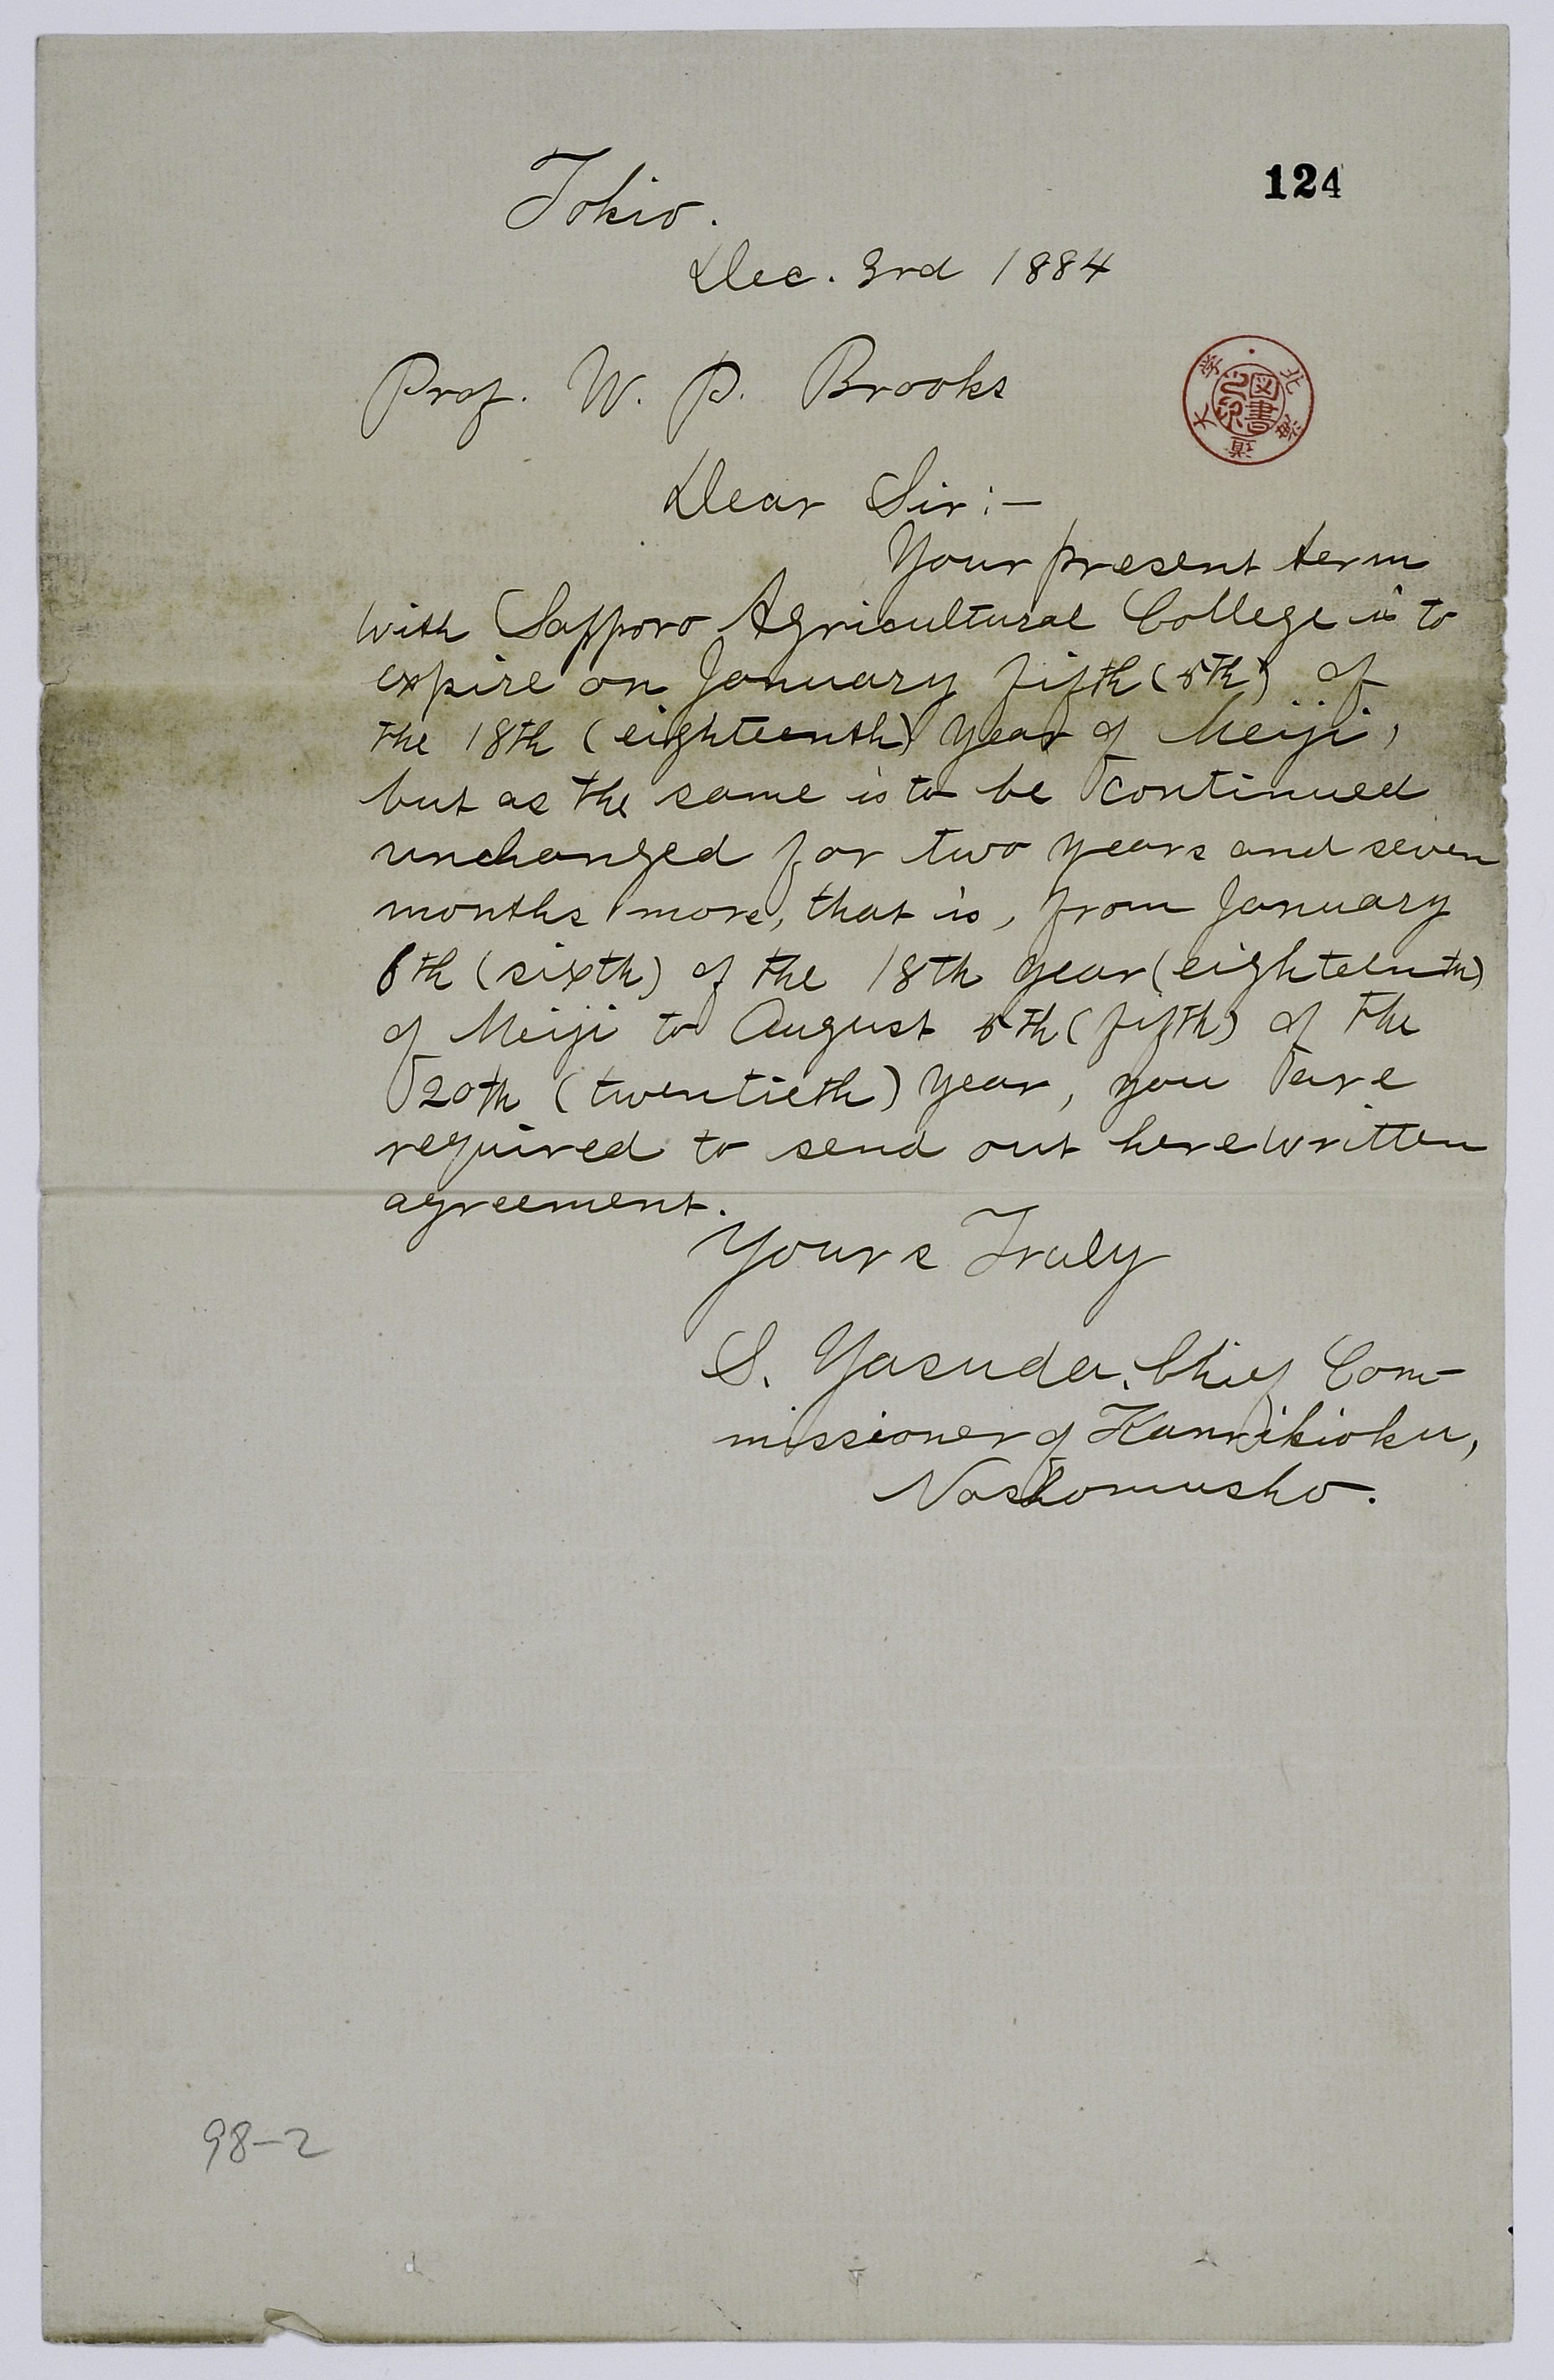 124
Tokio.
Dec. 3rd 1884
Prof. W. P. Brooks
北海道大学
図書之印
Dear Sir:—
Your present term
with Sapporo Agricultural College is to
expire on January fifth (5th) of
the 18th (eighteenth) year of Meiji,
but as the same is to be continued
unchanged for two years and seven
months more, that is, from January
6th (sixth) of the 18th year (eighteenth)
of Meiji to August 5th (fifth) of the
20th (twentieth) year, you are
required to send out here written
agreement.
Yours Truly
S. Yasuda, Chief Com-
missioner of Kanrikioku,
Noshomusho.
98-2